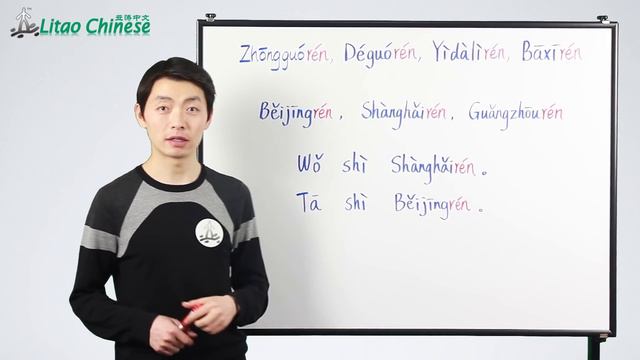 亚涛中文
Litao Chinese
Zhōngguórén, Déguórén, Yìdàlìrén, Bāxīrén
Běijīngrén, Shànghǎirén, Guǎngzhōurén
Wǒ shì Shànghǎirén。
Tā shì Běijīngrén。